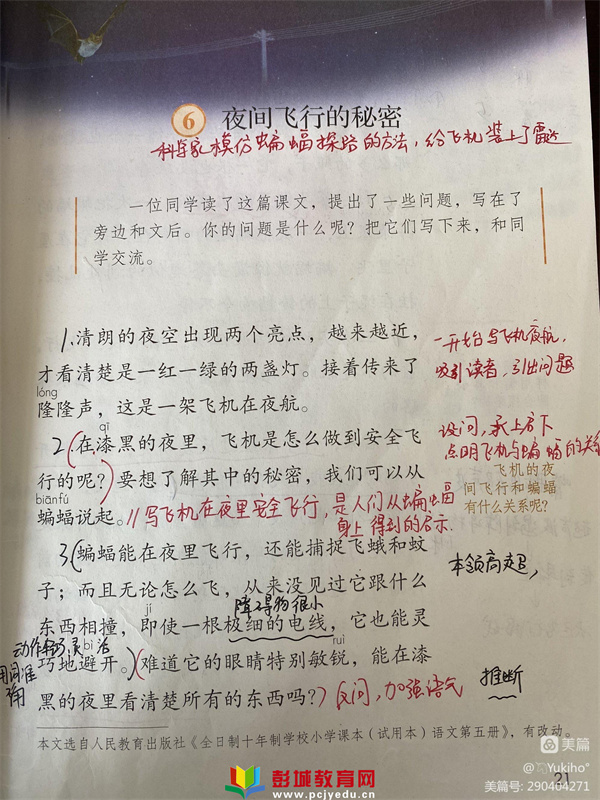 6 夜间飞行的秘密
科学家模仿蝙蝠探路的方法，给飞机装上了雷达
一位同学读了这篇课文，提出了一些问题，写在了
旁边和文后。你的问题是什么呢？把它们写下来，和同
学交流。
1.清朗的夜空出现两个亮点，越来越近，
才看清楚是一红一绿的两盏灯。接着传来了
lóng
隆隆声，这是一架飞机在夜航。
一开始写飞机夜航，
吸引读者，引出问题
qī
2(在漆黑的夜里，飞机是怎么做到安全飞
行的呢？)要想了解其中的秘密，我们可以从
biānfú
蝙蝠说起。//写飞机在夜里安全飞行，是人们从蝙蝠
身上得到的启示
设问，承上启下
点明飞机与蝙蝠的关系
飞机的夜
间飞行和蝙蝠
有什么关系呢？
3(蝙蝠能在夜里飞行，还能捕捉飞蛾和蚊
子；而且无论怎么飞，从来没见过它跟什么
本领高超，
障碍物很小
jí
东西相撞，即使一根极细的电线，它也能灵
动作轻巧,灵活
用词准确
bì
ruì
巧地避开。)(难道它的眼睛特别敏锐，能在漆
黑的夜里看清楚所有的东西吗？)反问，加强语气
推断
本文选自人民教育出版社《全日制十年制学校小学课本（试用本）语文第五册》，有改动。
21
美篇
Yukiho°
美篇号: 290404271
彭城教育网
www.pcjyedu.cn